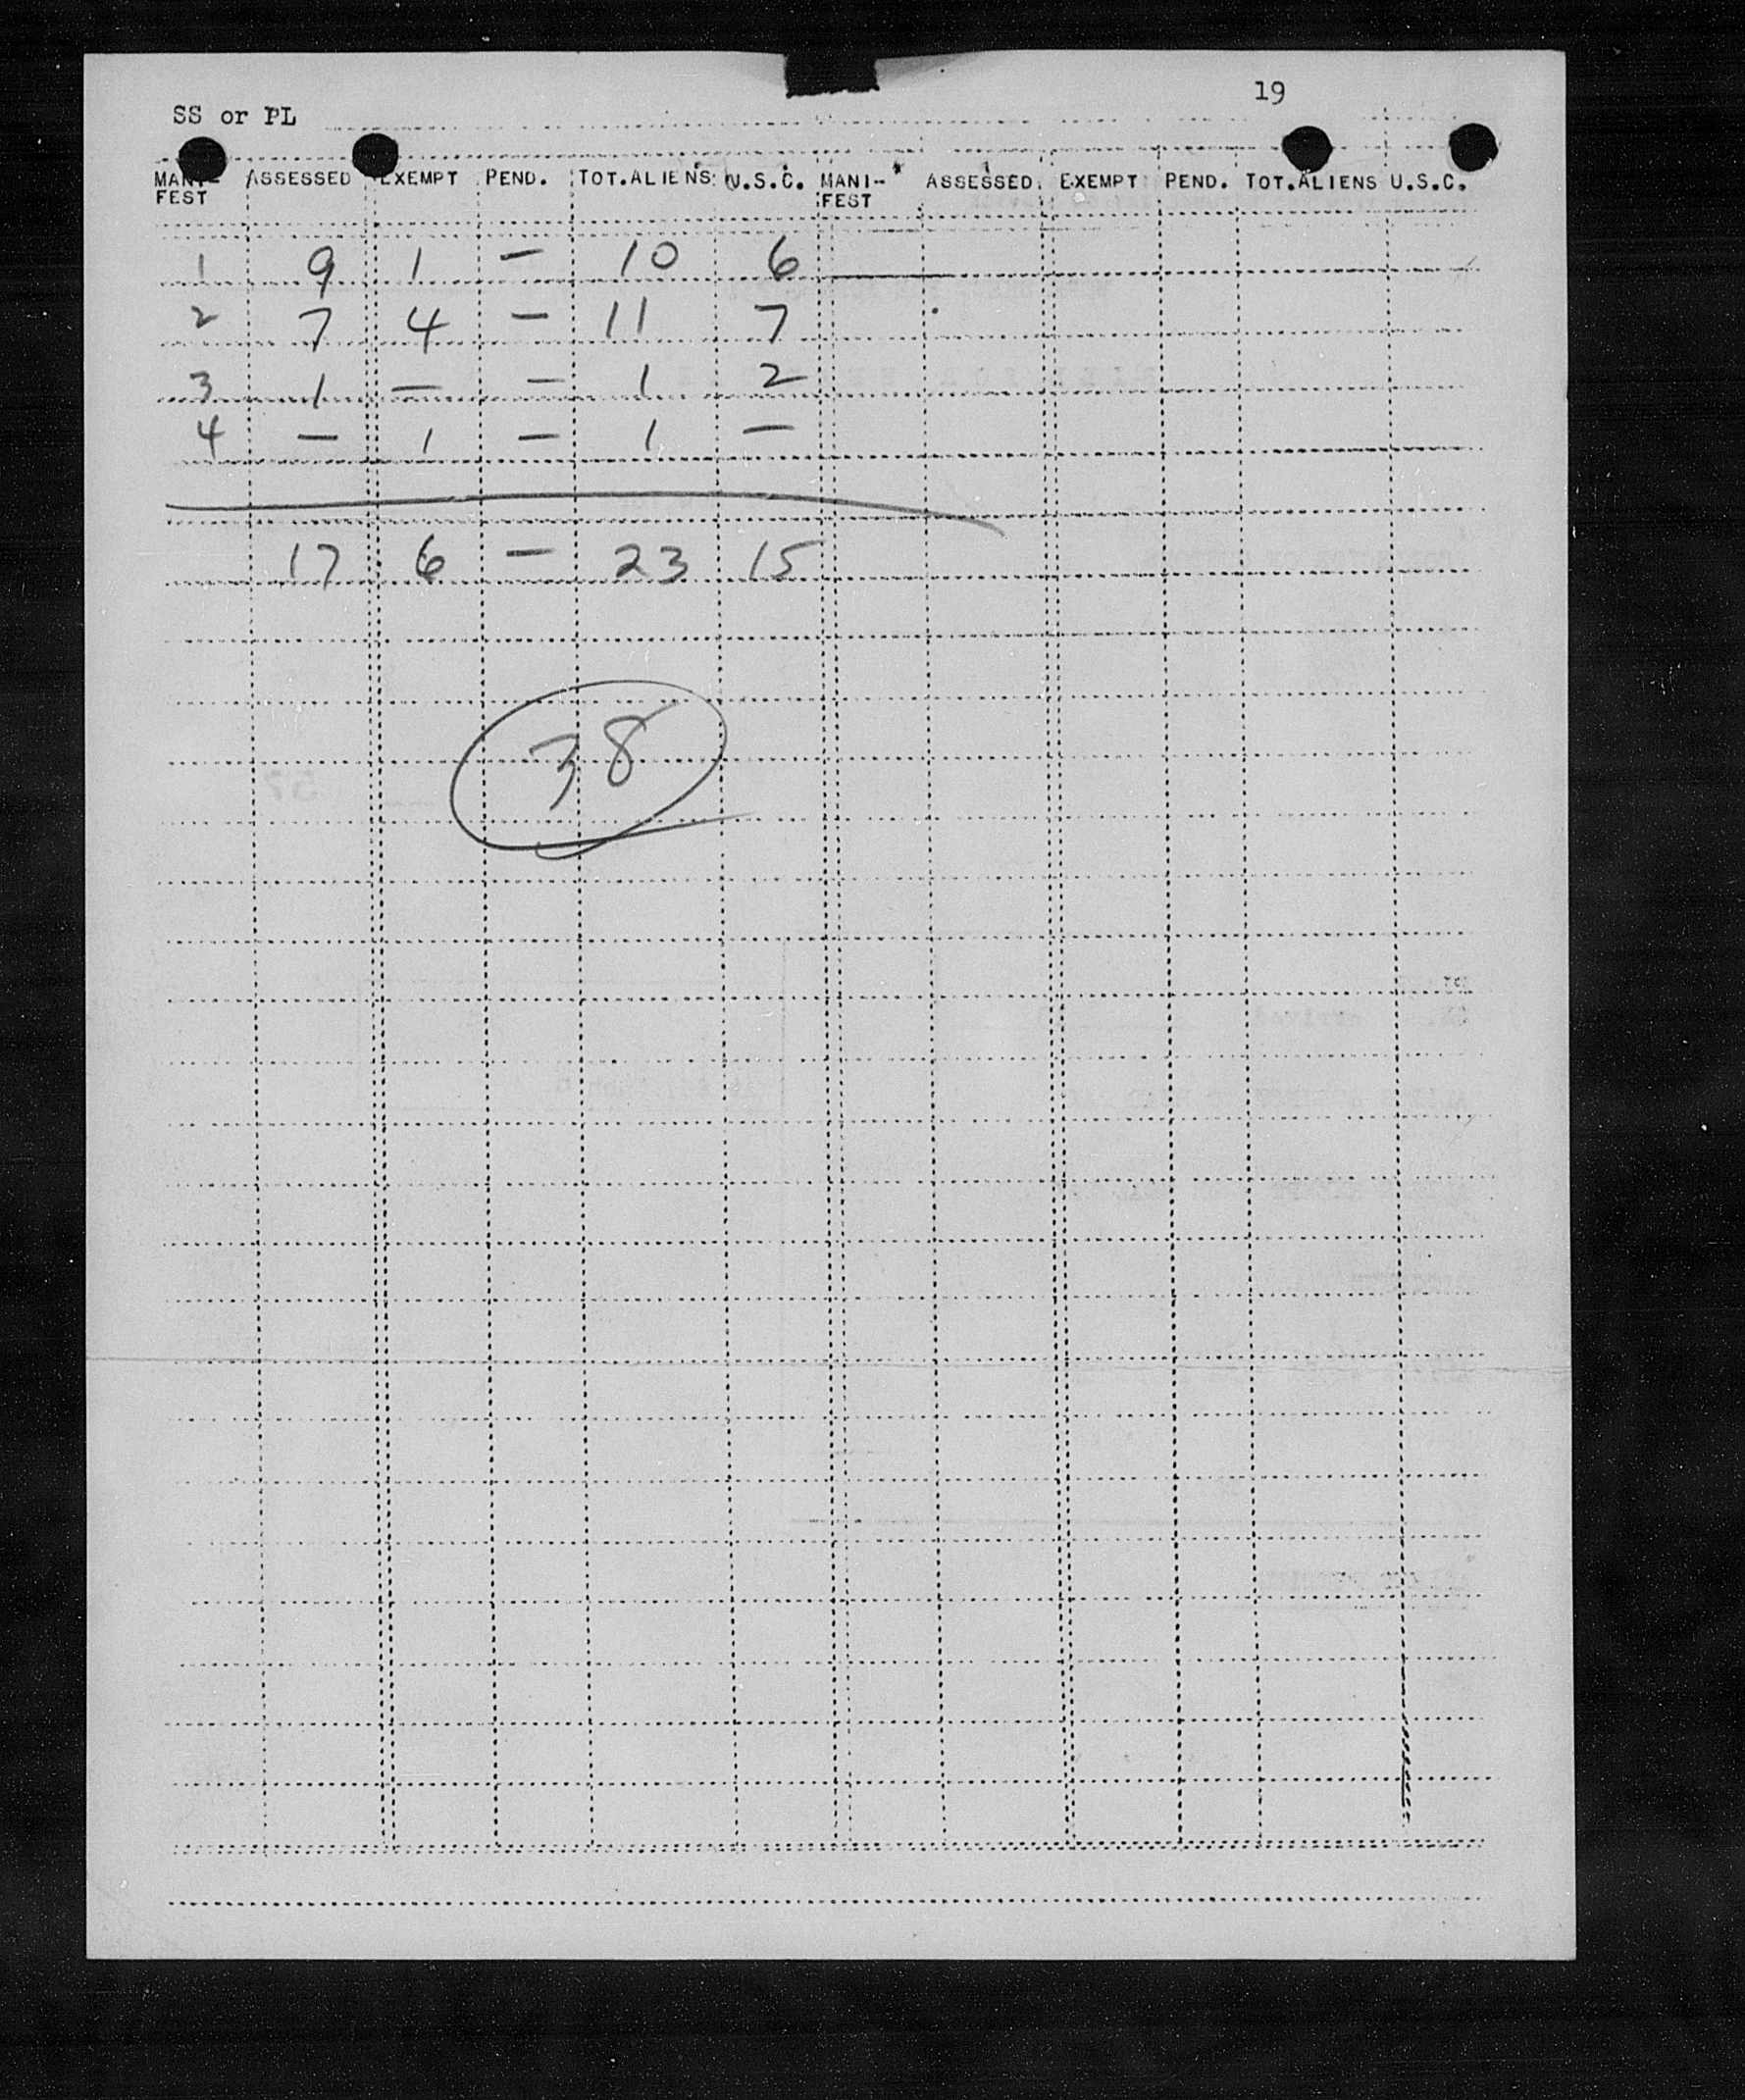 19
SS or PL
MANI- ASSESSED EXEMPT PEND. TOT.ALIENS U.S.C. MANI- ASSESSED EXEMPT PEND. TOT.ALIENS U.S.C.
FEST FEST
1 9 1 — 10 6
2 7 4 — 11 7
3 1 — — 1 2
4 — 1 — 1 —
17 6 — 23 15
38